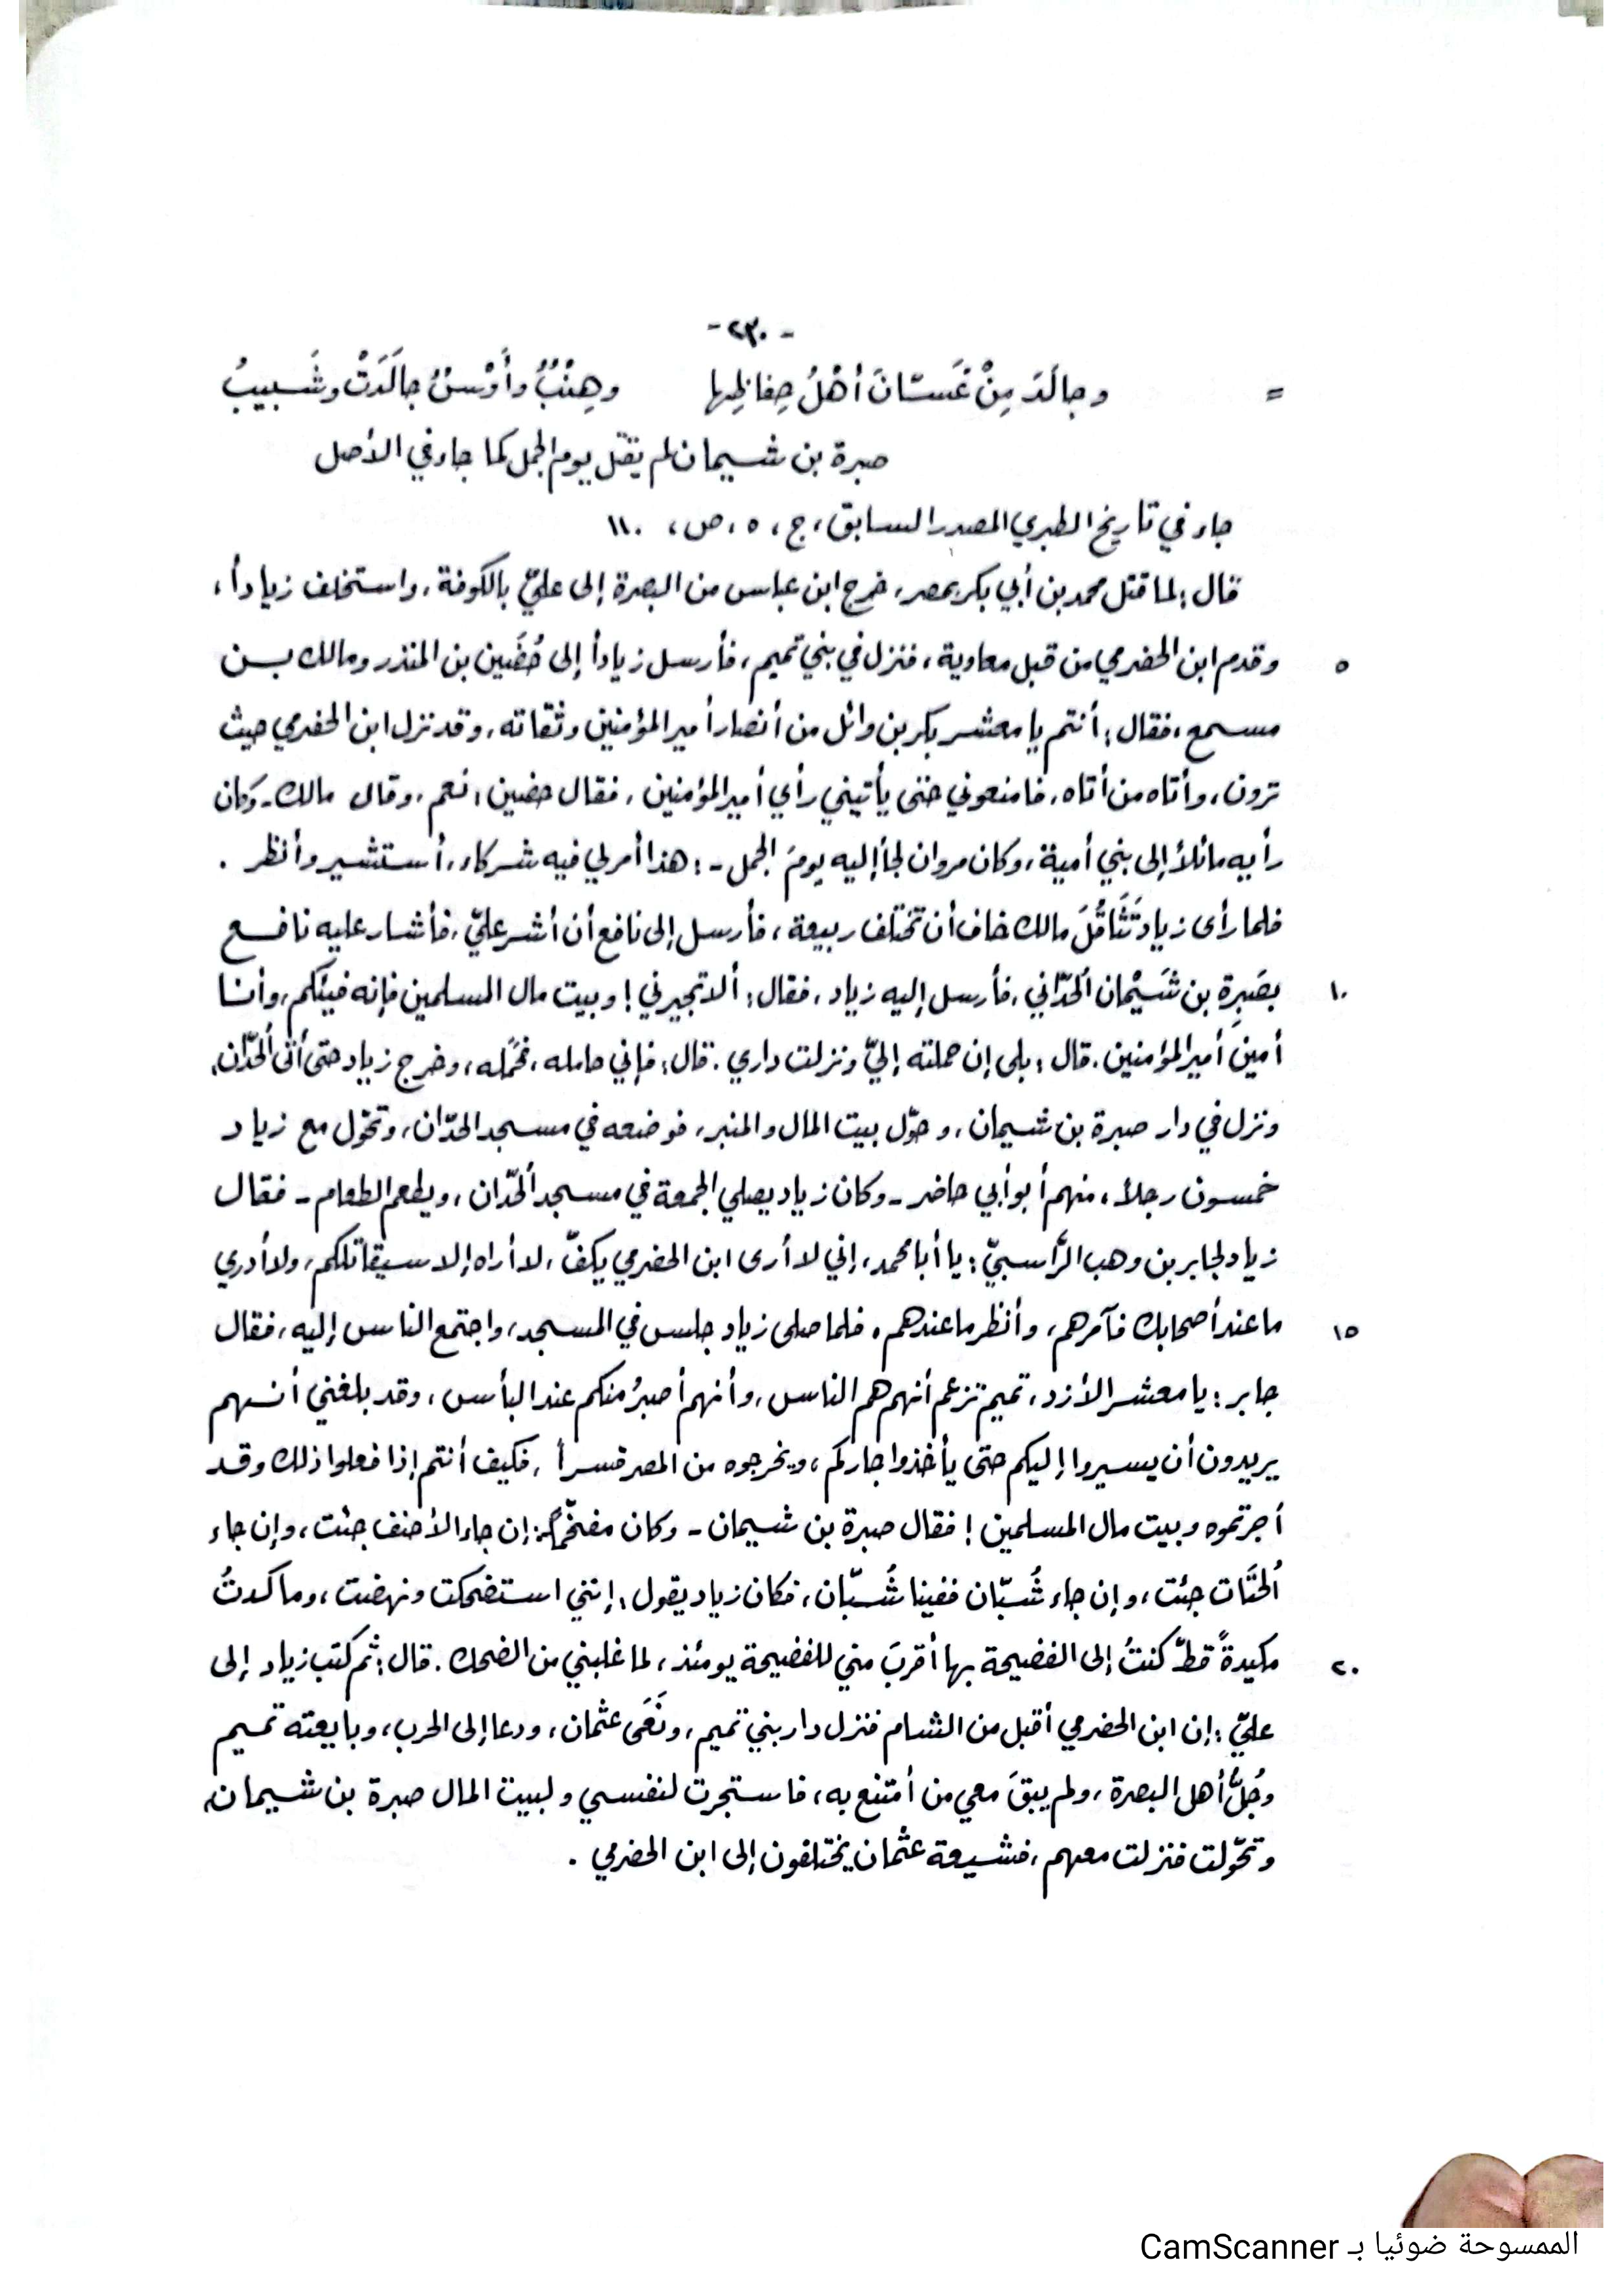 - ٢٣٠ -
= وجالَدَ مِنْ غَسّانَ أهْلُ حِفاظِها وهِنْبٌ وأَوْسٌ جالَدَتْ وشَبيبُ
صبرة بن شيمان لم يقتل يوم الجمل كما جاء في الأصل
جاء في تاريخ الطبري المصدر السابق، ج، ٥، ص، ١١٠
قال: لما قتل محمد بن أبي بكر بمصر، خرج ابن عباس من البصرة إلى عليّ بالكوفة، واستخلف زياداً،
٥ وقدم ابن الحضرمي من قبل معاوية، فنزل في بني تميم، فأرسل زياداً إلى حُضَين بن المنذر ومالك بـن
مسمع، فقال: أنتم يا معشر بكر بن وائل من أنصار أمير المؤمنين وثقاته، وقد نزل ابن الحضرمي حيث
ترون، وأتاه من أتاه، فامنعوني حتى يأتيني رأي أمير المؤمنين، فقال حضين: نعم، وقال مالك - وكان
رأيه مائلاً إلى بني أمية، وكان مروان لجأ إليه يومَ الجمل -: هذا أمر لي فيه شركاء، أستشير وأنظر .
فلما رأى زياد تَثَاقُلَ مالك خاف أن تختلف ربيعة، فأرسل إلى نافع أن أشر عليّ، فأشار عليه نافـع
١٠ بصَبِرة بن شَيْمان الُحدّاني، فأرسل إليه زياد، فقال: ألا تجيرني! وبيت مال المسلمين فإنه فيئكم، وأنـا
أمينَ أمير المؤمنين. قال: بلى إن حملته إليّ ونزلت داري. قال: فإني حامله، فحَمَله، وخرج زياد حتى أتى الُحدّان،
ونزل في دار صبرة بن شيمان، وحوّل بيت المال والمنبر، فوضعه في مسجد الحدّان، وتحوّل مع زياد
خمسون رجلاً، منهم أبو أبي حاضر - وكان زياد يصلي الجمعة في مسجد الُحدّان، ويطعم الطعام - فقال
زياد لجابر بن وهب الرّاسبيّ: يا أبا محمد، إني لا أرى ابن الحضرمي يكفّ، لا أراه إلا سيقاتلكم، ولا أدري
١٥ ما عند أصحابك فآمرهم، وأنظر ما عندهم. فلما صلى زياد جلس في المسجد، واجتمع الناس إليه، فقال
جابر: يا معشر الأزد، تميم تزعم أنهم هم الناس، وأنهم أصبرُ منكم عند البأس، وقد بلغني أنـهم
يريدون أن يسيروا إليكم حتى يأخذوا جاركم، ويخرجوه من المصر قسراً، فكيف أنتم إذا فعلوا ذلك وقـد
أجرتموه وبيت مال المسلمين! فقال صبرة بن شيمان - وكان مفخّماً: إن جاء الأحنف جئت، وإن جاء
الُحتَّات جئت، وإن جاء شُبّان ففينا شُبّان، فكان زياد يقول: إنني استضحكت ونهضت، وما كدتُ
٢٠ مكيدةً قطّ كنتُ إلى الفضيحة بها أقربَ مني للفضيحة يومئذ، لما غلبني من الضحك. قال: ثم كتب زياد إلى
عليّ: إن ابن الحضرمي أقبل من الشام فنزل دار بني تميم، ونَعَى عثمان، ودعا إلى الحرب، وبايعته تميـم
وجُلُّ أهل البصرة، ولم يبقَ معي من أمتنع به، فاستجرت لنفسي ولبيت المال صبرة بن شيمان،
وتحوّلت فنزلت معهم، فشيعة عثمان يختلفون إلى ابن الحضرمي .
الممسوحة ضوئيا بـ CamScanner